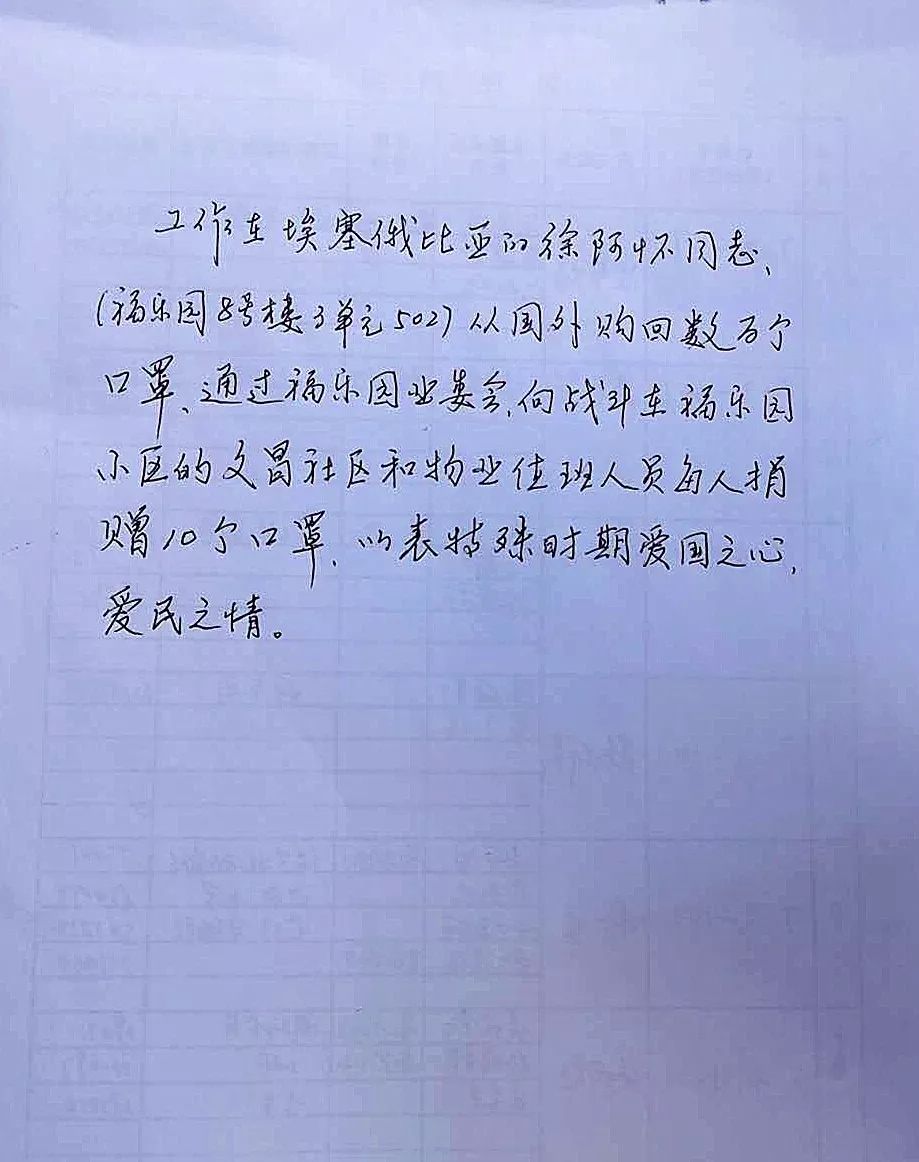 工作在埃塞俄比亚的徐阿怀同志、
(福乐园8号楼3单元502)从国外购回数万个
口罩、通过福乐园业委会,向战斗在福乐园
小区的文昌社区和物业值班人员每人捐
赠10个口罩、以表特殊时期爱国之心,
爱民之情。